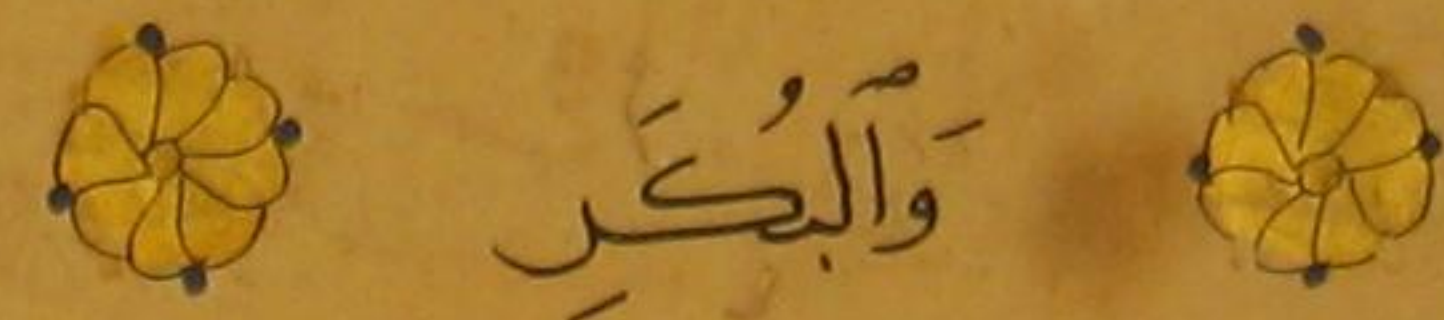 وَٱلْبُكَرِ